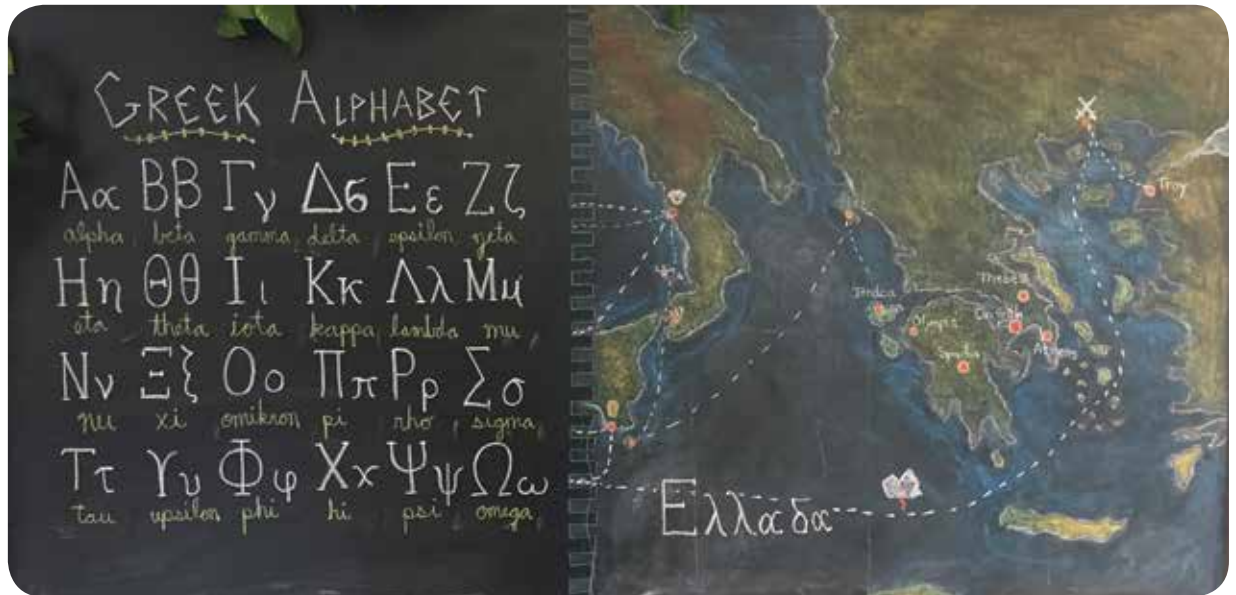 GREEK ALPHABET
Αα Ββ Γγ Δδ Εε Ζζ
alpha beta gamma delta epsilon zeta
Ηη Θθ Ιι Κκ Λλ Μμ
eta theta iota kappa lambda mu
Νν Ξξ Οο Ππ Ρρ Σσ
nu xi omikron pi rho sigma
Ττ Υυ Φφ Χχ Ψψ Ωω
tau upsilon phi hi psi omega
X
Troy
Thebes
Ithaca
Olympia
Athens
Sparta
Ελλαδα